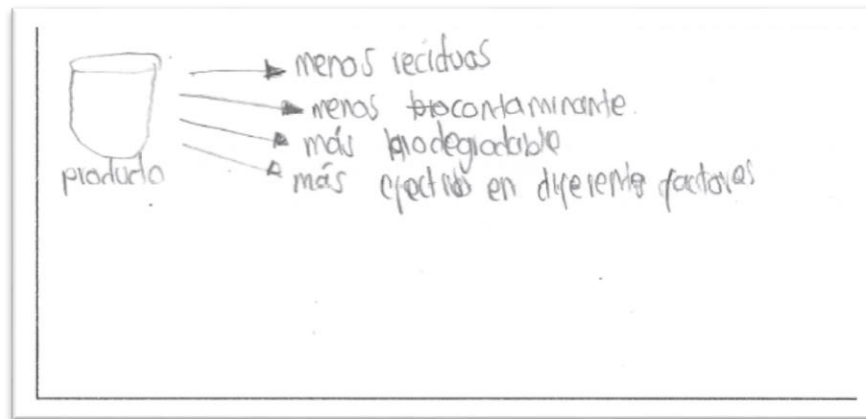 menos reciduos
menos contaminante.
más biodegradable
más efectivo en diferente factores
producto